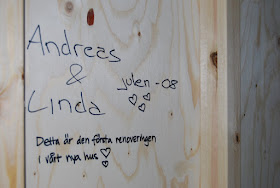 Andreas
&
Linda
julen -08
Detta är den första renoveringen
i vårt nya hus